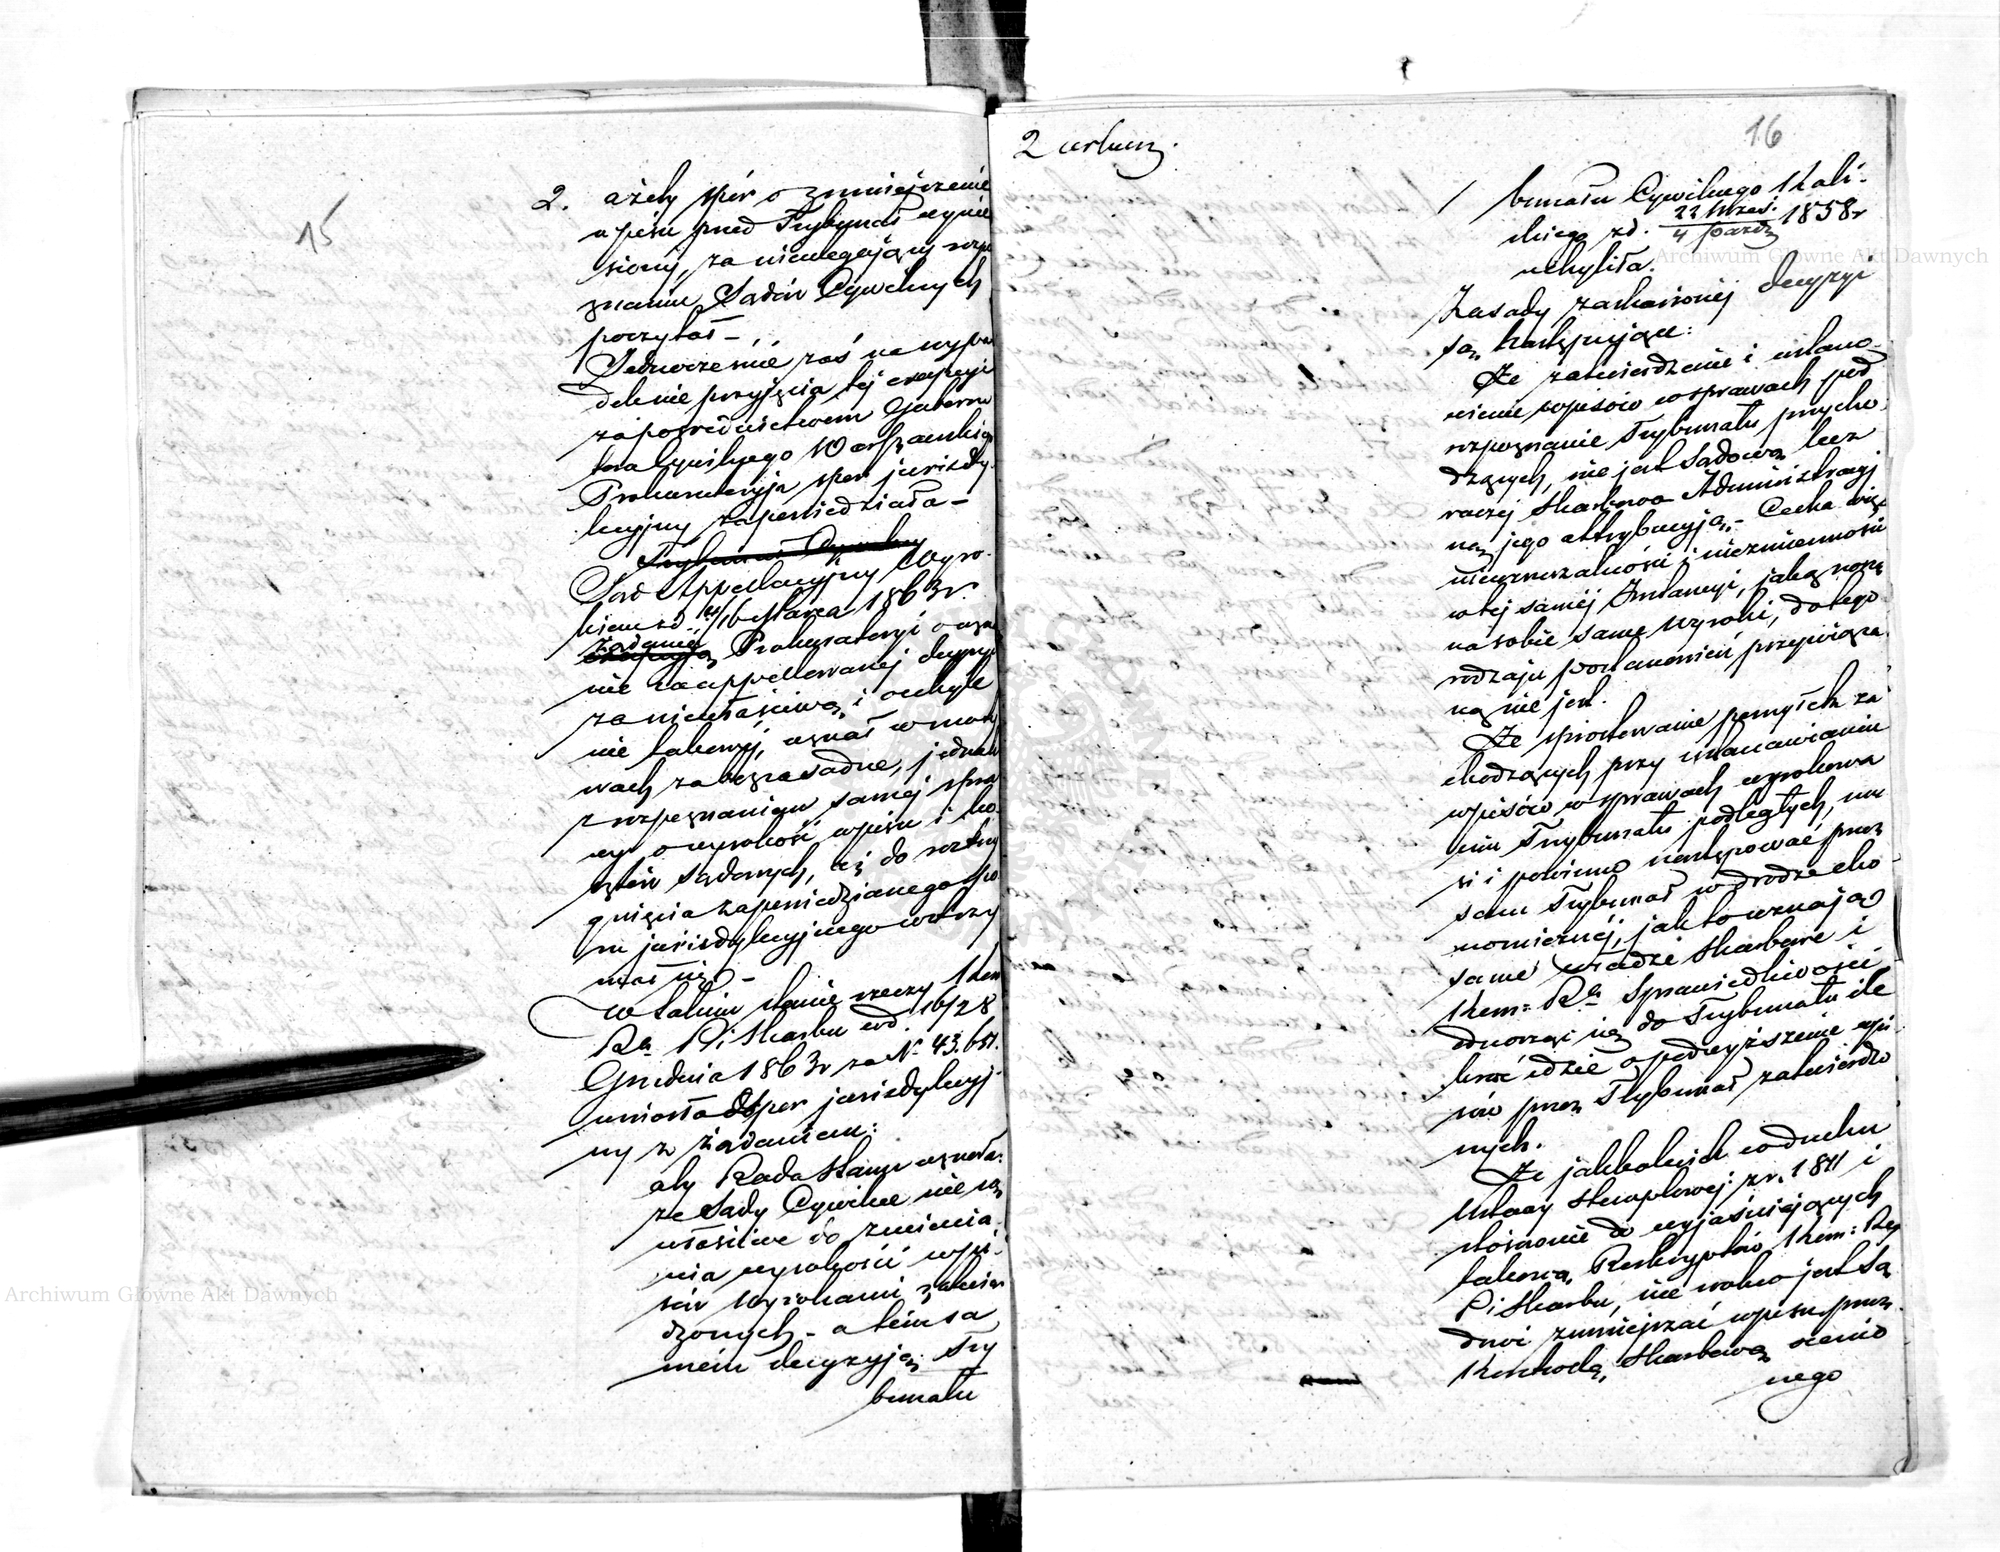 15
2. ażeby spór o zmniejszenie
wpisu przed Trybunał wynie
siony, za nieulegający rozpo
znaniu Sądów Cywilnych
poczytał –
Jednocześnie zaś na wypa
dek nie przyjęcia tej excepcyi
za pośrednictwem Guberna
tora Cywilnego Warszawskiego
Prokuratorya spór jurisdy-
kcyjny zapowiedziała –
Trybunał Cywilny
Sąd Appellacyjny Wyro-
kiem zd. 4/16 Marca 1863r.
żądanie
Prokuratoryi o uzna
nie zaappellowanej decyzyi
za niewłaściwą i uchyle
nie takowej, uznał w moty
wach za bezzasadne, jednak
z rozpoznaniem samej spra
wy o wysokość wpisu i ko-
sztów sądowych, aż do rozstrzy
gnięcia zapowiedzianego spo
ru jurisdykcyjnego wstrzy
mał się –
W takim stanie rzeczy Kom
Rz. P. i Skarbu zd. 16/28
Grudnia 1863r za Nr. 43.651.
wniosła spór jurisdykcyj-
ny z żądaniem:
aby Rada Stanu uznała:
że Sądy Cywilne nie są
właściwe do zmienia-
nia wysokości wpi-
sów Wyrokami zatwier
dzonych – a tém sa
mém decyzyją Try
bunału
2 arkusz.
16
bunału Cywilnego Kali-
skiego zd. 22 Wrześ./4 Paźdz 1858r
uchyliła.
Zasady zaskarżonéj decyzyi
są następujące:
Że zatwierdzenie i ustano-
wienie wpisów w sprawach pod
rozpoznanie Trybunału przycho-
dzących, nie jest Sądową lecz
raczej Skarbowo Administracyj
ną jego attrybucyją. – Cecha więc
niewzruszalności i niezmienności
w tej saméj Instancyi, jaką noszą
na sobie same Wyroki, do tego
rodzaju postanowień przywiąza-
ną nie jest.
Że sprostowanie pomyłek za
chodzących przy ustanawianiu
wpisów w sprawach wyrokowa
niu Trybunału podległych, mu
si i powinno następować przez
sam Trybunał w drodze eko
nomicznéj, jak to uznają
same władze Skarbowe i
Kom: Rz. Sprawiedliwości
odnosząc się do Trybunału ile
kroć idzie o podwyższenie wpi
sów przez Trybunał zatwierdzo
nych.
Że jakkolwiek w duchu
Ustawy Stemplowej: z r. 1811 i
stosownie do wyjaśniających
takową Reskryptów Kom: Rz
P. i Skarbu, nie wolno jest Są
dowi zmniejszać wpisu przez
Kontrolę Skarbową ocenio
nego
Archiwum Główne Akt Dawnych
Archiwum Główne Akt Dawnych